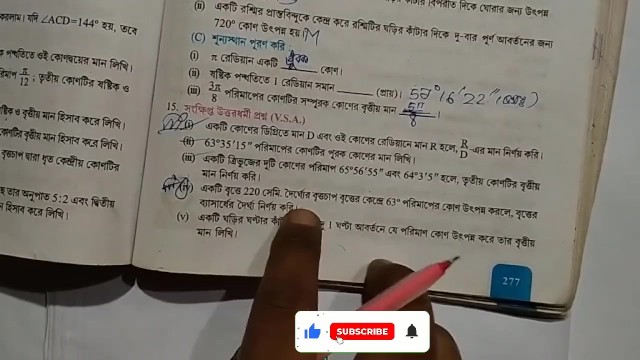 কোণ উৎপন্ন
(ii) একটি রশ্মির প্রান্তবিন্দুকে কেন্দ্র করে রশ্মিটির ঘড়ির কাঁটার দিকে দু-বার পূর্ণ আবর্তনের জন্য
720° কোণ উৎপন্ন হয়।
(C) শূন্যস্থান পূরণ করি :
(i) π রেডিয়ান একটি ধ্রুবক কোণ।
(ii) ষষ্টিক পদ্ধতিতে 1 রেডিয়ান সমান ______ (প্রায়)। 57° 16' 22"
(iii) 3π/8 পরিমাপের কোণটির সম্পূরক কোণের বৃত্তীয় মান 5π/8 ।
15. সংক্ষিপ্ত উত্তরধর্মী প্রশ্ন (V.S.A.)
(i) একটি কোণের ডিগ্রিতে মান D এবং ওই কোণের রেডিয়ানে মান R হলে, R/D -এর মান নির্ণয় করি।
(ii) 63°35'15" পরিমাপের কোণটির পূরক কোণের মান লিখি।
(iii) একটি ত্রিভুজের দুটি কোণের পরিমাপ 65°56'55" এবং 64°3'5" হলে, তৃতীয় কোণটির বৃত্তীয়
মান নির্ণয় করি।
(iv) একটি বৃত্তে 220 সেমি. দৈর্ঘ্যের বৃত্তচাপ বৃত্তের কেন্দ্রে 63° পরিমাপের কোণ উৎপন্ন করলে, বৃত্তের
ব্যাসার্ধের দৈর্ঘ্য নির্ণয় করি।
(v) একটি ঘড়ির ঘণ্টার 1 ঘণ্টা আবর্তনে যে পরিমাণ কোণ উৎপন্ন করে তার বৃত্তীয়
মান লিখি।
277
যদি ∠ACD=144° হয়, তবে
পদ্ধতিতে ওই কোণদ্বয়ের মান লিখি।
π/12 ; তৃতীয় কোণটির ষষ্টিক ও
ষ্টিক ও বৃত্তীয় মান হিসাব করে লিখি।
কোণটির বৃত্তীয় মান হিসাব করে লিখি।
বৃত্তচাপ দ্বারা ধৃত কেন্দ্রীয় কোণটির
তার অনুপাত 5:2 এবং দ্বিতীয়
হিসাব করে লিখি।
SUBSCRIBE